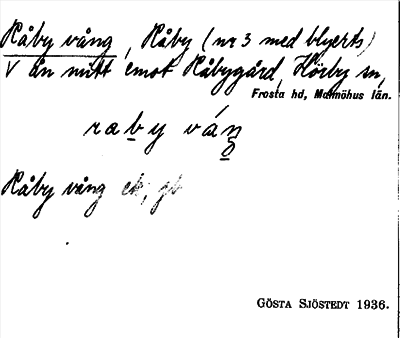 Råby vång, Råby (nr 3 med blyerts)
V ån mitt emot Råbygård, Hörby sn,
Frosta hd, Malmöhus län.
raby váŋ
Råby vång
GÖSTA SJÖSTEDT 1936.